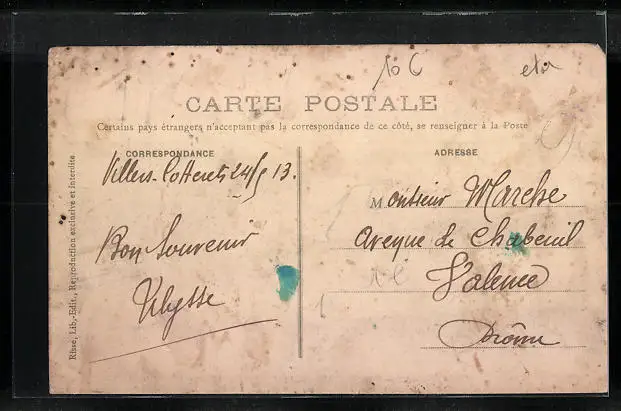 10 €
CARTE POSTALE
Certains pays étrangers n'acceptant pas la correspondance de ce côté, se renseigner à la Poste
CORRESPONDANCE
Villers-Cotterets 24/5 13.
Bon Souvenir
Ulysse
ADRESSE
Monsieur Marche
Avenue de Chabeuil
Valence
Drôme
Risse, Lib.-Edit., Reproduction exclusive et interdite